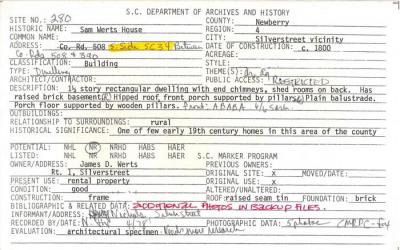 S.C. DEPARTMENT OF ARCHIVES AND HISTORY
SITE NO.: 280 COUNTY: Newberry
HISTORIC NAME: Sam Werts House REGION: 4
COMMON NAME: CITY: Silverstreet vicinity
ADDRESS: Co. Rd. 508 S. Side SC 34 Between DATE OF CONSTRUCTION: c. 1800
Co. Rds 508 & 390 ACREAGE:
CLASSIFICATION: Building STYLE:
Dwelling THEME(S):
ARCHITECT/CONTRACTOR: PUBLIC ACCESS: RESTRICTED
DESCRIPTION: 1½ story rectangular dwelling with end chimneys, shed rooms on back. Has
raised brick basement. Hipped roof, front porch supported by pillars. Plain balustrade.
Porch floor supported by wooden pillars. front: ABABA
OUTBUILDINGS:
RELATIONSHIP TO SURROUNDINGS: rural
HISTORICAL SIGNIFICANCE: One of few early 19th century homes in this area of the county
POTENTIAL: NHL NR NRHD HABS HAER
LISTED: NHL NR NRHD HABS HAER S.C. MARKER PROGRAM
OWNER/ADDRESS: James D. Werts PREVIOUS OWNERS:
Rt. 1, Silverstreet ORIGINAL SITE: x MOVED/DATE:
PRESENT USE: rental property ORIGINAL USE: x
CONDITION: good ALTERED/UNALTERED:
CONSTRUCTION: frame ROOF: raised seam tin FOUNDATION: brick
BIBLIOGRAPHIC & RELATED DATA: ADDITIONAL PHOTOS IN BACKUP FILES.
INFORMANT/ADDRESS: Nichols, Silverstreet
RECORDED BY/DATE: 4/78 PHOTOGRAPHIC DATA: 5 photos
EVALUATION: architectural specimen. Needs more research